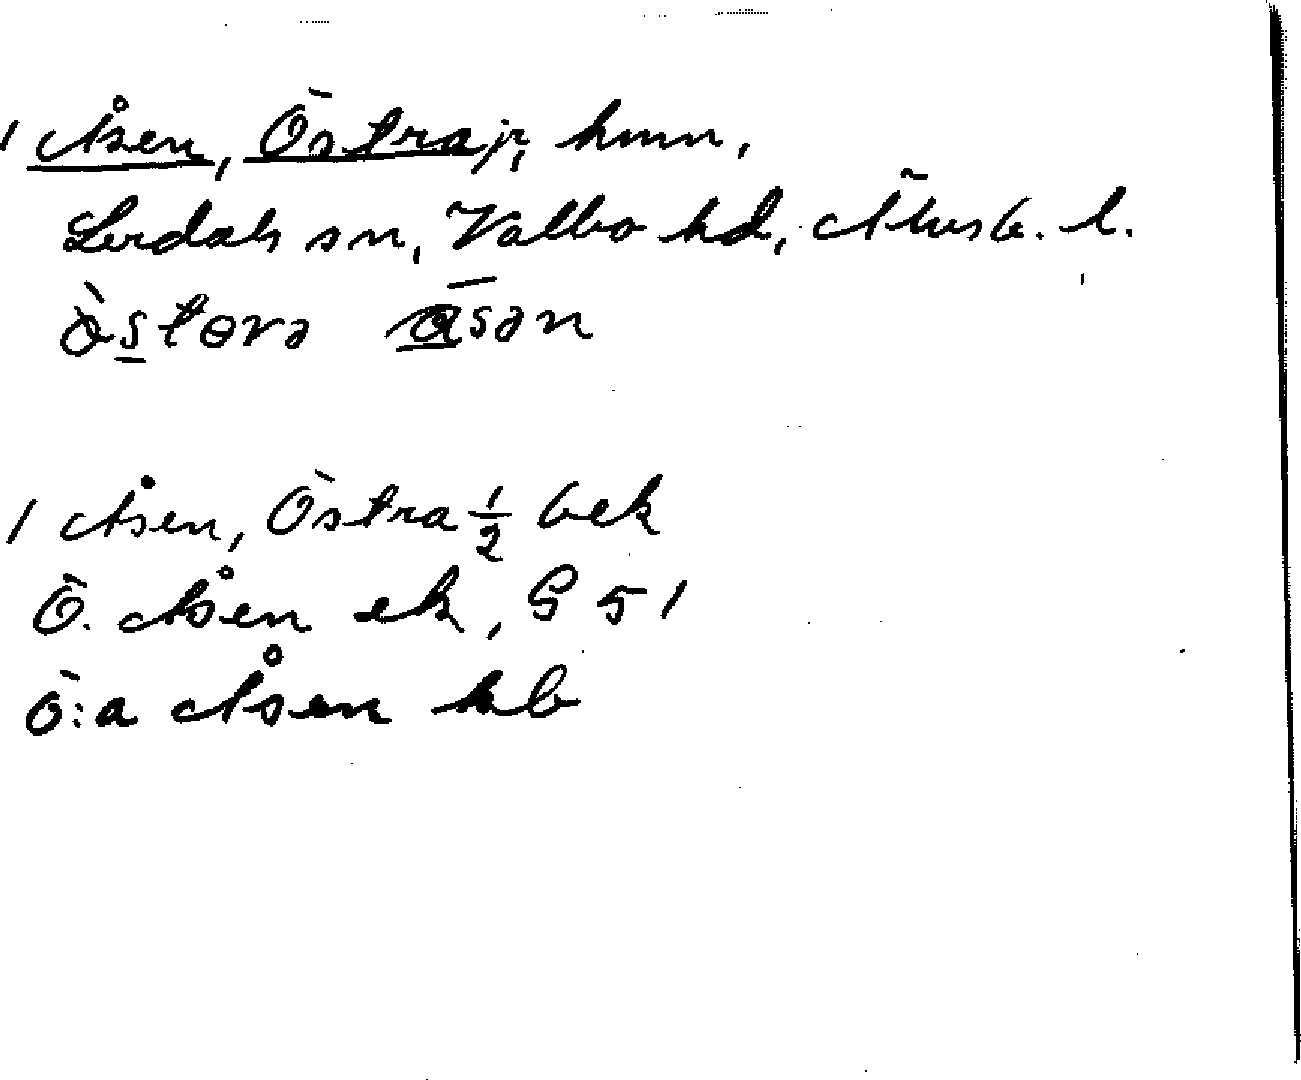 1 Åsen, Östra, hmn,
Lerdals sn, Valbo hd, Älvsb. l.
1 Åsen, Östra ½ bek
Ö. Åsen ek, G 51
Ö:a Åsen kb